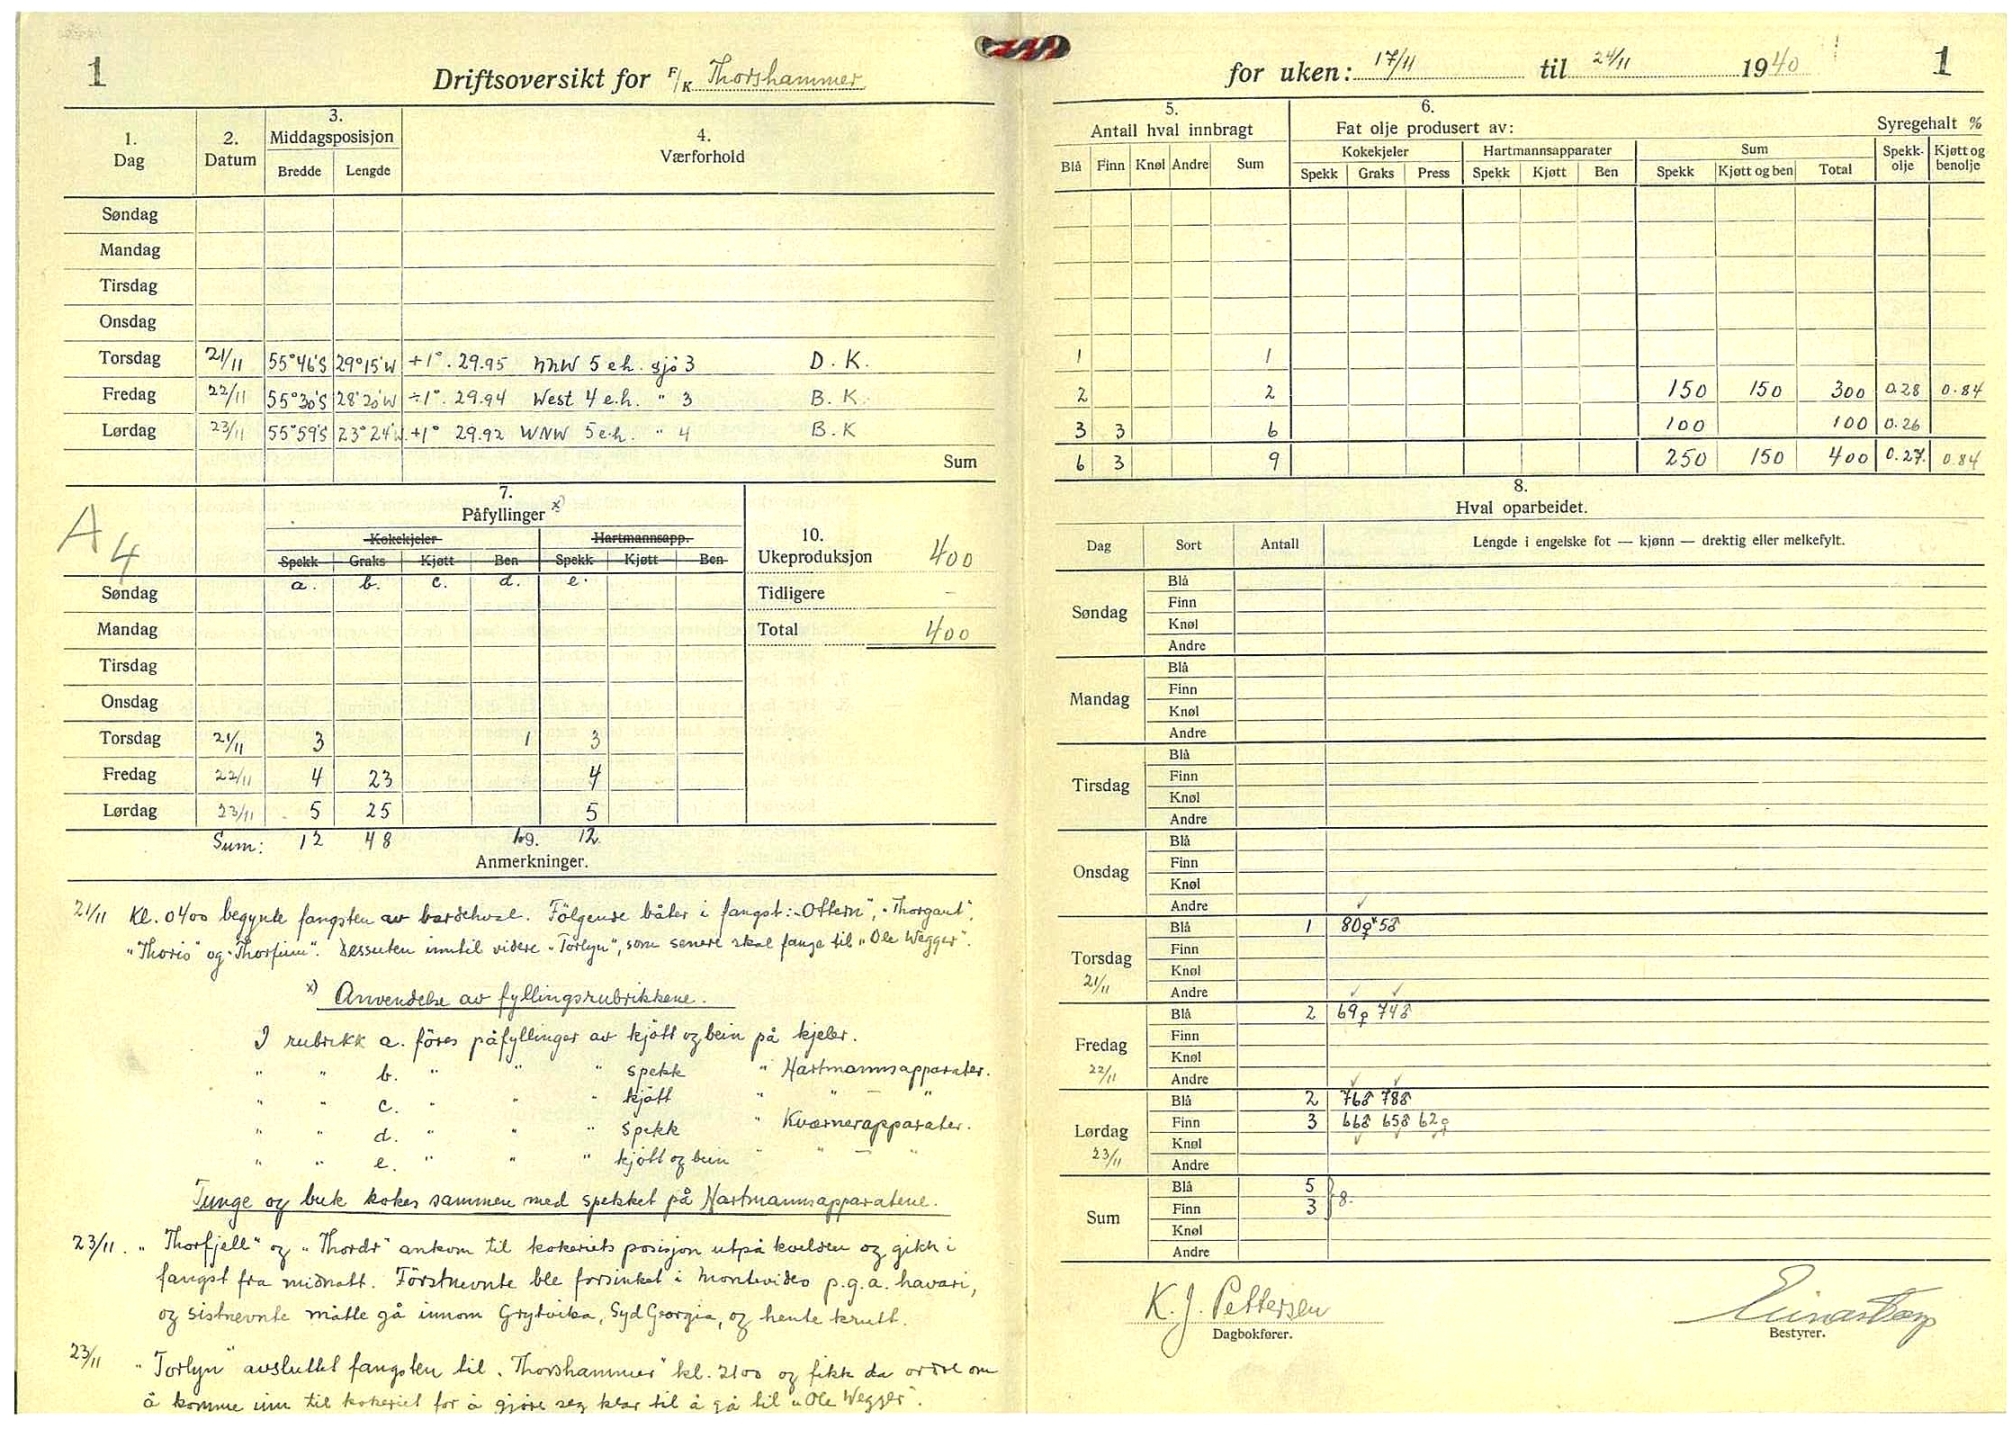 1
Driftsoversikt for F/K Thorshammer
1. Dag
2. Datum
3. Middagsposisjon
Bredde Lengde
4. Værforhold
Søndag
Mandag
Tirsdag
Onsdag
Torsdag 21/11 55°46'S 29°15'W +1°. 29.95 NNW 5 e.h. sjö 3 D. K.
Fredag 22/11 55°30'S 28°20'W ÷1°. 29.94 West 4 e.h. " 3 B. K.
Lørdag 23/11 55°59'S 23°24'W +1° 29.92 WNW 5 e.h. " 4 B. K
Sum
A 4
7. Påfyllinger x)
Kokekjeler Hartmannsapp.
Spekk Graks Kjøtt Ben Spekk Kjøtt Ben
a. b. c. d. e.
Søndag
Mandag
Tirsdag
Onsdag
Torsdag 21/11 3 1 3
Fredag 22/11 4 23 4
Lørdag 23/11 5 25 5
Sum: 12 48 12
10.
Ukeproduksjon 400
Tidligere -
Total 400
Anmerkninger.
21/11 Kl. 0400 begynte fangsten av bardehval. Følgende båter i fangst: "Ottern", "Thorgaut",
"Thoris" og "Thorfinn". Dessuten inntil videre "Torlyn", som senere skal fange til "Ole Wegger".
x) Anvendelse av fyllingsrubrikkene.
I rubrikk a. föres påfyllinger av kjött og bein på kjeler.
" " b. " " " spekk " Hartmannsapparater.
" " c. " " " kjött " " — "
" " d. " " " spekk " Kværnerapparater.
" " e. " " " kjött og bein " " — "
Tunge og buk kokes sammen med spekket på Hartmannsapparatene.
23/11. "Thorfjell" og "Thordr" ankom til kokeriets posisjon utpå kvelden og gikk i
fangst fra midnatt. Förstnevnte ble forsinket i Montevideo p.g.a. havari,
og sistnevnte måtte gå innom Grytvika, Syd Georgia, og hente krutt.
23/11 "Torlyn" avsluttet fangsten til "Thorshammer" kl. 2100 og fikk da ordre om
å komme inn til kokeriet for å gjöre seg klar til å gå til "Ole Wegger".
for uken: 17/11 til 24/11 1940 1
5. Antall hval innbragt
Blå Finn Knøl Andre Sum
6. Fat olje produsert av:
Kokekjeler Hartmannsapparater Sum
Spekk Graks Press Spekk Kjøtt Ben Spekk Kjøtt og ben Total
Syregehalt %
Spekk-olje Kjøtt og benolje
1 1
2 2 150 150 300 0.28 0.84
3 3 6 100 100 0.26
6 3 9 250 150 400 0.27 0.84
8.
Hval oparbeidet.
Dag Sort Antall Lengde i engelske fot — kjønn — drektig eller melkefylt.
Søndag
Blå
Finn
Knøl
Andre
Mandag
Blå
Finn
Knøl
Andre
Tirsdag
Blå
Finn
Knøl
Andre
Onsdag
Blå
Finn
Knøl
Andre
Torsdag 21/11
Blå 1 80♀ˣ5♂
Finn
Knøl
Andre
Fredag 22/11
Blå 2 69♀ 74♂
Finn
Knøl
Andre
Lørdag 23/11
Blå 2 76♂ 78♂
Finn 3 66♂ 65♂ 62♀
Knøl
Andre
Sum
Blå 5
Finn 3 } 8.
Knøl
Andre
K. J. Pettersen
Dagbokfører.
Bestyrer.